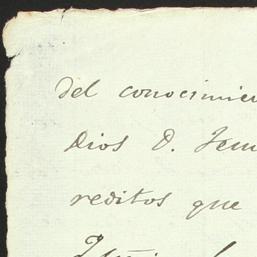 del conocimien
Dios D. Fem
reditos que